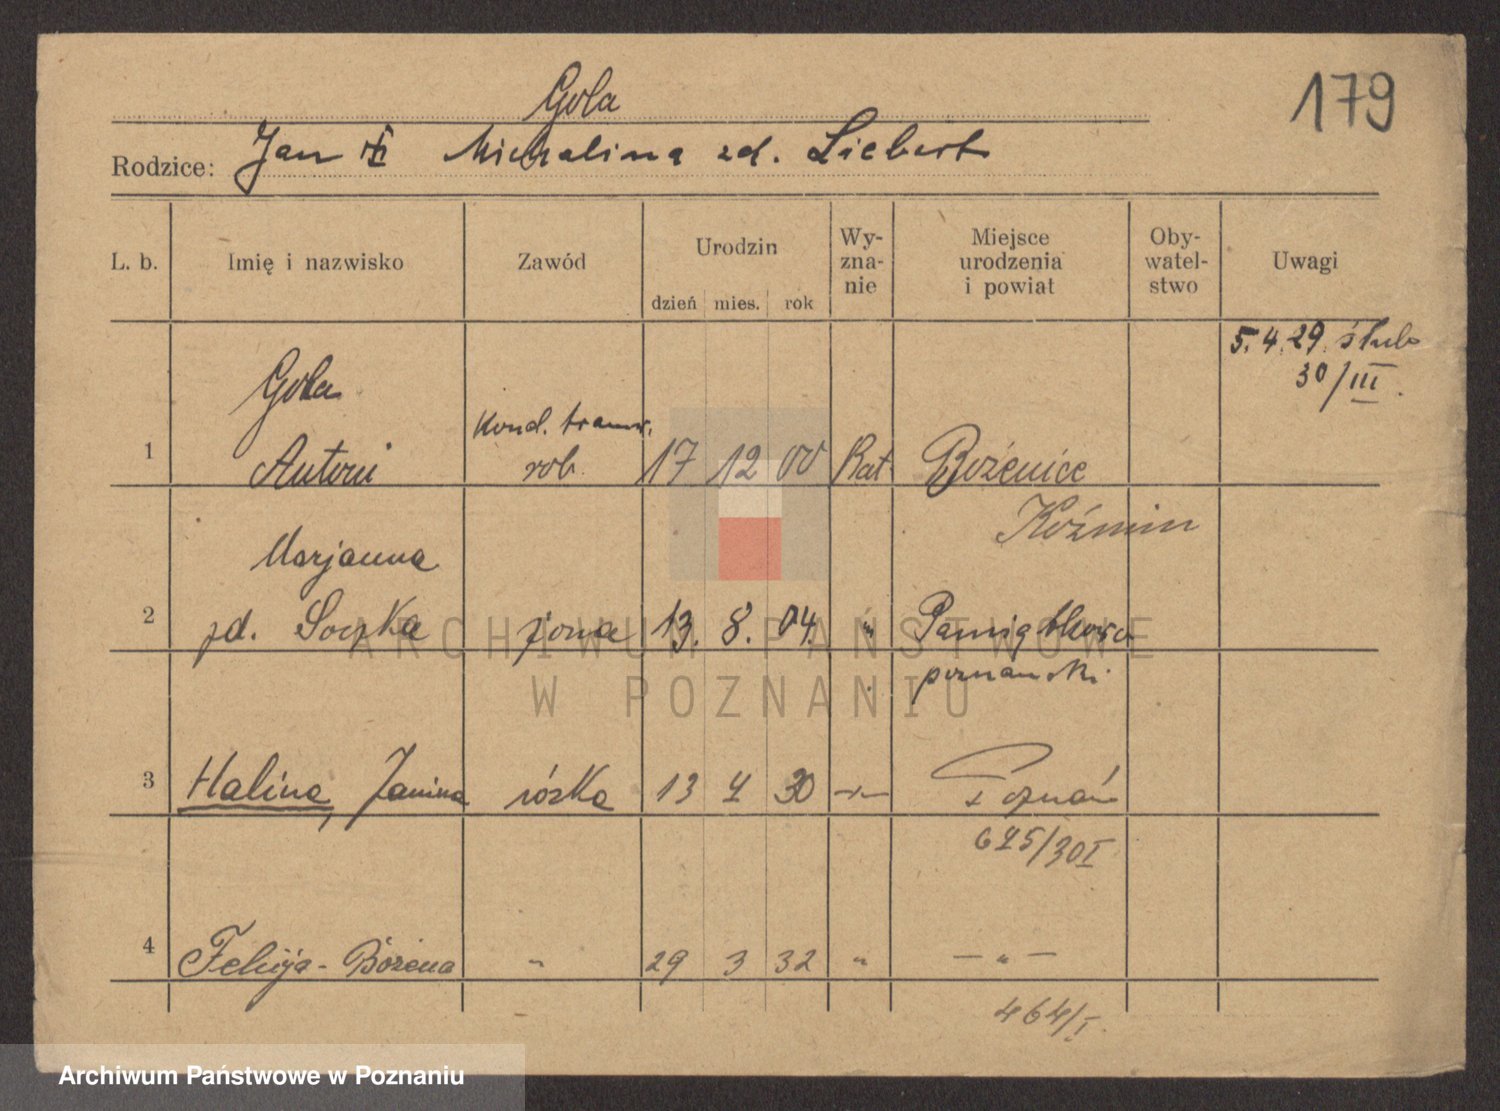 179
Gola
Rodzice: Jan i Michalina zd. Liebert
L. b.
Imię i nazwisko
Zawód
Urodzin
dzień mies. rok
Wy-
zna-
nie
Miejsce
urodzenia
i powiat
Oby-
watel-
stwo
Uwagi
5.4.29 ślub
30/III.
Gola
Kond. tramw.
1 Antoni rob. 17 12 00 Kat Bożenice
Koźmin
Marjanna
2 zd. Soczka żona 13. 8. 04. " Pamiątkowo
poznański
3 Halina, Janina córka 13 4 30 -"- Poznań
645/30 I
4 Felicja - Bożena " 29 3 32 " - " -
464/I.
ARCHIWUM PAŃSTWOWE
W POZNANIU
Archiwum Państwowe w Poznaniu